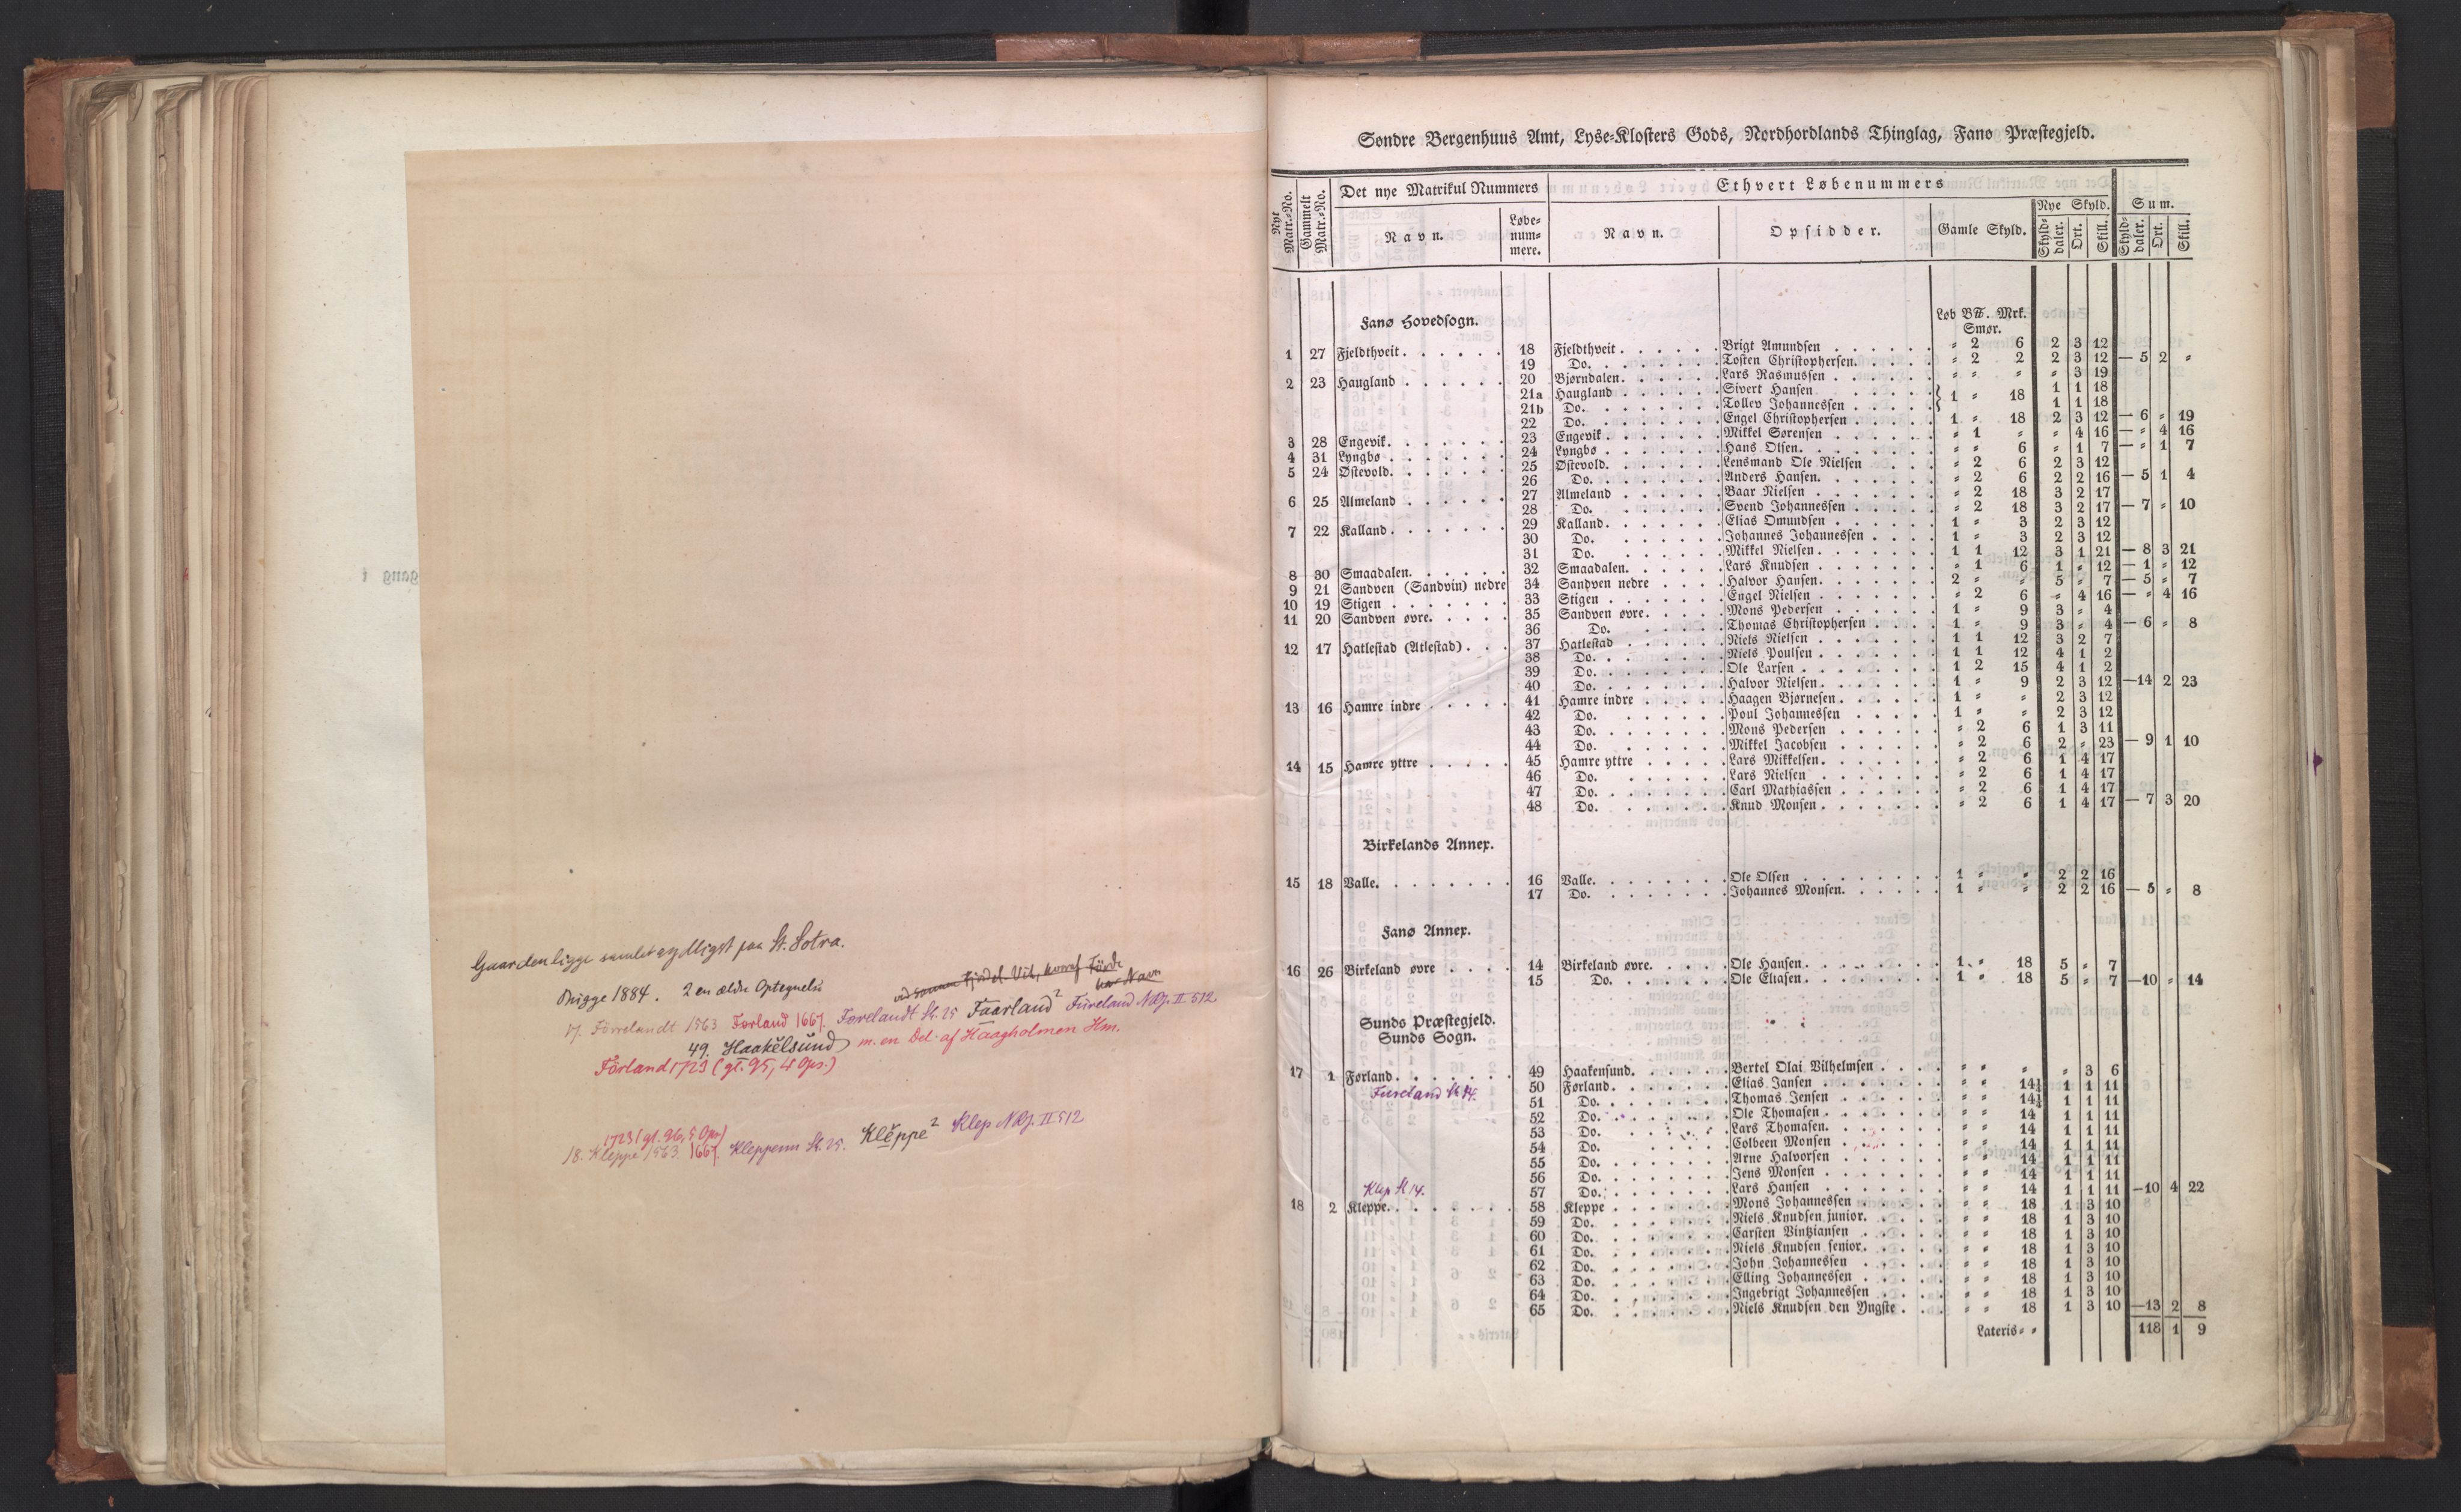 Gaarden ligge samlet sydligst paa St. Sotra.
Brigge 1884. 2 en ældre Optegnelse
17. Förrelandt 1563 Forland 1667. Forelandt St. 25 Faarland² Fureland NRJ. II 512
49. Haakelsund) m. en Del af Haagholmen Hm.
Förland 1723 (gl. 95, 4 Ops.)
1723 (gl. 96, 5 Ops)
18. Kleppe 1563. 1667. Kleppenn St. 25. Kleppe² Klep NRJ. II 512
Søndre Bergenhuus Amt, Lyse-Klosters Gods, Nordhordlands Thinglag, Fanø Præstegjeld.
Nyt Matr.-No. Gammelt Matr.-No. Det nye Matrikul Nummers Ethvert Løbenummers
Navn. Løbenummere. Navn. Opsidder. Gamle Skyld. Nye Skyld. Skylddaler. Ort. Skill. Sum. Skylddaler. Ort. Skill.
Fanø Hovedsogn. Løb B℔. Mrk. Smør.
1 27 Fjeldthveit. 18 Fjeldthveit. Brigt Amundsen " 2 6 2 3 12
19 Do. Tosten Christophersen. " 2 2 2 3 12 — 5 2 "
2 23 Haugland 20 Bjørndalen. Lars Rasmussen " " " " 3 19
21a Haugland Sivert Hansen } 1 " 18 1 1 18
21b Do. Tollev Johannessen 1 1 18
22 Do. Engel Christophersen 1 " 18 2 3 12 — 6 " 19
3 28 Engevik. 23 Engevik. Mikkel Sørensen " 1 " " 4 16 — " 4 16
4 31 Lyngbø 24 Lyngbø Hans Olsen. " " 6 " 1 7 — " 1 7
5 24 Østevold. 25 Østevold. Lensmand Ole Nielsen " 2 6 2 3 12
26 Do. Anders Hansen. " 2 6 2 2 16 — 5 1 4
6 25 Almeland 27 Almeland Baar Nielsen " 2 18 3 2 17
28 Do. Svend Johannessen " 2 18 3 2 17 — 7 " 10
7 22 Kalland. 29 Kalland. Elias Omundsen 1 " 3 2 3 12
30 Do. Johannes Johannessen 1 " 3 2 3 12
31 Do. Mikkel Nielsen. 1 1 12 3 1 21 — 8 3 21
8 30 Smaadalen. 32 Smaadalen. Lars Knudsen " 1 6 1 " 12 — 1 " 12
9 21 Sandven (Sandvin) nedre 34 Sandven nedre Halvor Hansen. 2 " " 5 " 7 — 5 " 7
10 19 Stigen 33 Stigen Engel Nielsen " 2 6 " 4 16 — " 4 16
11 20 Sandven øvre. 35 Sandven øvre. Mons Pedersen 1 " 9 3 " 4
36 Do. Thomas Christophersen 1 " 9 3 " 4 — 6 " 8
12 17 Hatlestad (Atlestad) 37 Hatlestad Niels Nielsen 1 1 12 3 2 7
38 Do. Niels Poulsen 1 1 12 4 1 2
39 Do. Ole Larsen 1 2 15 4 1 2
40 Do. Halvor Nielsen. 1 " 9 2 3 12 —14 2 23
13 16 Hamre indre 41 Hamre indre Haagen Bjørnesen. 1 " " 2 3 12
42 Do. Poul Johannessen 1 " " 2 3 12
43 Do. Mons Pedersen " 2 6 1 3 11
44 Do. Mikkel Jacobsen " 2 6 2 " 23 — 9 1 10
14 15 Hamre yttre 45 Hamre yttre Lars Mikkelsen. " 2 6 1 4 17
46 Do. Lars Nielsen " 2 6 1 4 17
47 Do. Carl Mathiassen " 2 6 1 4 17
48 Do. Knud Monsen. " 2 6 1 4 17 — 7 3 20
Birkelands Annex.
15 18 Valle. 16 Valle. Ole Olsen 1 " " 2 2 16
17 Do. Johannes Monsen. 1 " " 2 2 16 — 5 " 8
Fanø Annex.
16 26 Birkeland øvre 14 Birkeland øvre. Ole Hansen. 1 " 18 5 " 7
15 Do. Ole Eliasen. 1 " 18 5 " 7 —10 " 14
Sunds Præstegjeld.
Sunds Sogn.
17 1 Førland. 49 Haakensund. Bertel Olai Vilhelmsen " " " " 3 6
Fureland St. 14. 50 Førland. Elias Jansen " " 14½ 1 1 11
51 Do. Thomas Jensen " " 14½ 1 1 11
52 Do. Ole Thomasen. " " 14 1 1 11
53 Do. Lars Thomasen. " " 14 1 1 11
54 Do. Colbeen Monsen " " 14 1 1 11
55 Do. Arne Halvorsen " " 14 1 1 11
56 Do. Jens Monsen " " 14 1 1 11
Klep St 14. 57 Do. Lars Hansen " " 14 1 1 11 —10 4 22
18 2 Kleppe. 58 Kleppe Mons Johannessen " " 18 1 3 10
59 Do. Niels Knudsen junior. " " 18 1 3 10
60 Do. Carsten Vintziansen " " 18 1 3 10
61 Do. Niels Knudsen senior. " " 18 1 3 10
62 Do. John Johannessen " " 18 1 3 10
63 Do. Elling Johannessen " " 18 1 3 10
64 Do. Ingebrigt Johannessen " " 18 1 3 10
65 Do. Niels Knudsen den Yngste " " 18 1 3 10 —13 2 8
Lateris " " 118 1 9